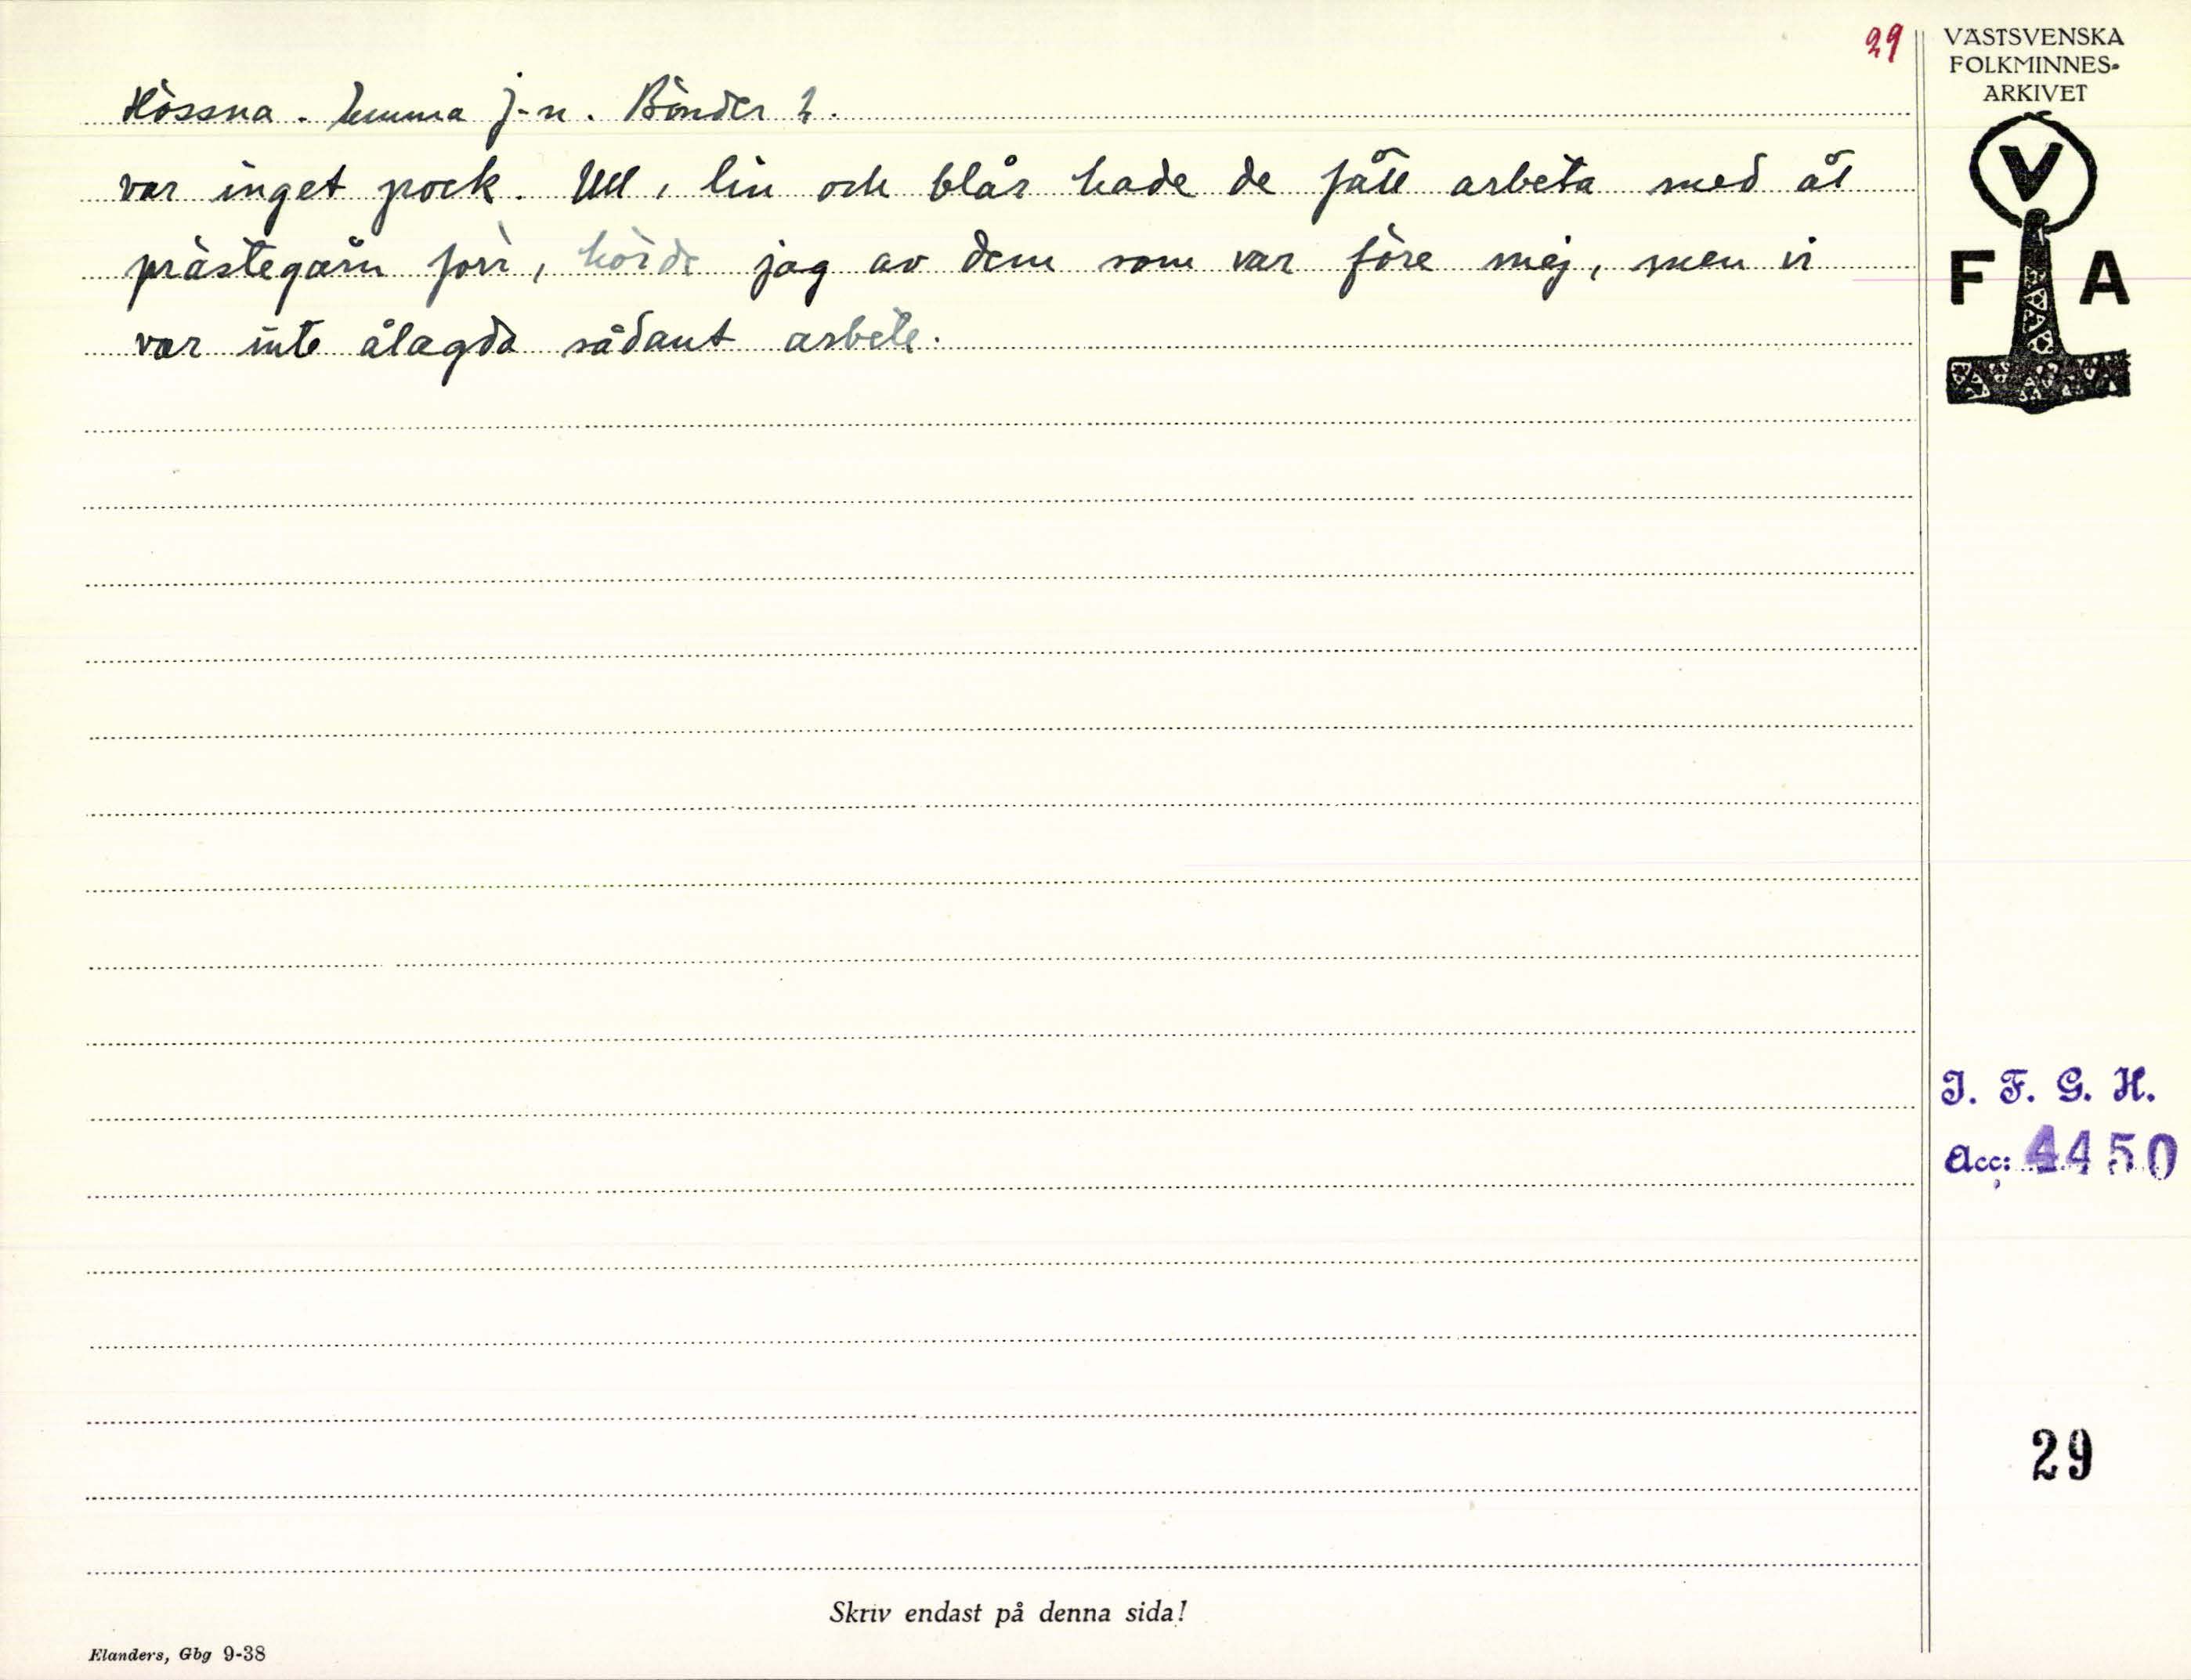 29
VÄSTSVENSKA
FOLKMINNES-
ARKIVET
Hössna. Emma J-n. Bönder 2.
var inget pock. Ull, lin och blår hade de fått arbeta med åt
prästegårn förr, hörde jag av dem som var före mej, men vi
var inte ålagda sådant arbete.
V
F A
I. F. G. H.
Acc: 4450
29
Skriv endast på denna sida!
Elanders, Gbg 9-38